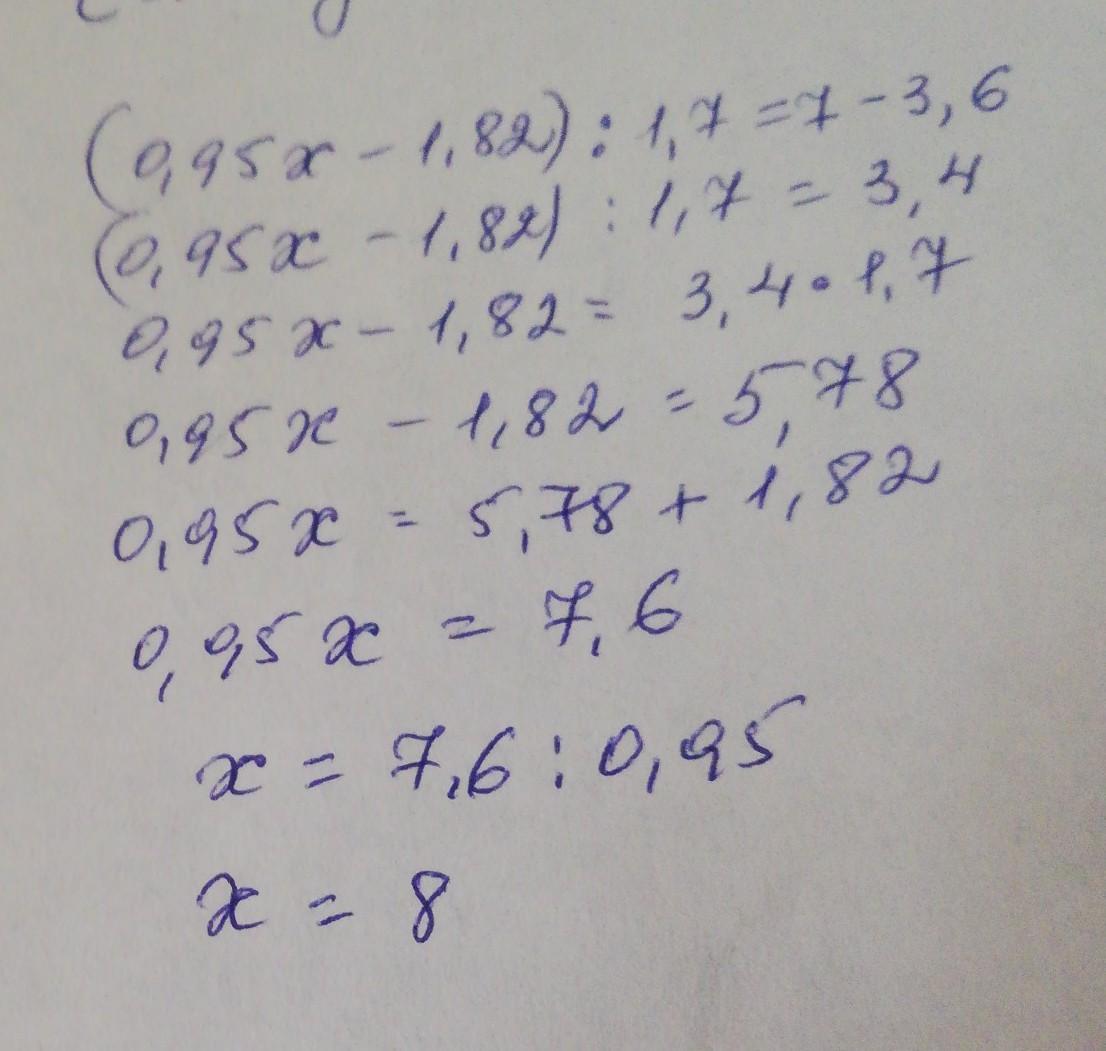 (0,95x - 1,82) : 1,7 = 7 - 3,6
(0,95x - 1,82) : 1,7 = 3,4
0,95x - 1,82 = 3,4 • 1,7
0,95x - 1,82 = 5,78
0,95x = 5,78 + 1,82
0,95x = 7,6
x = 7,6 : 0,95
x = 8